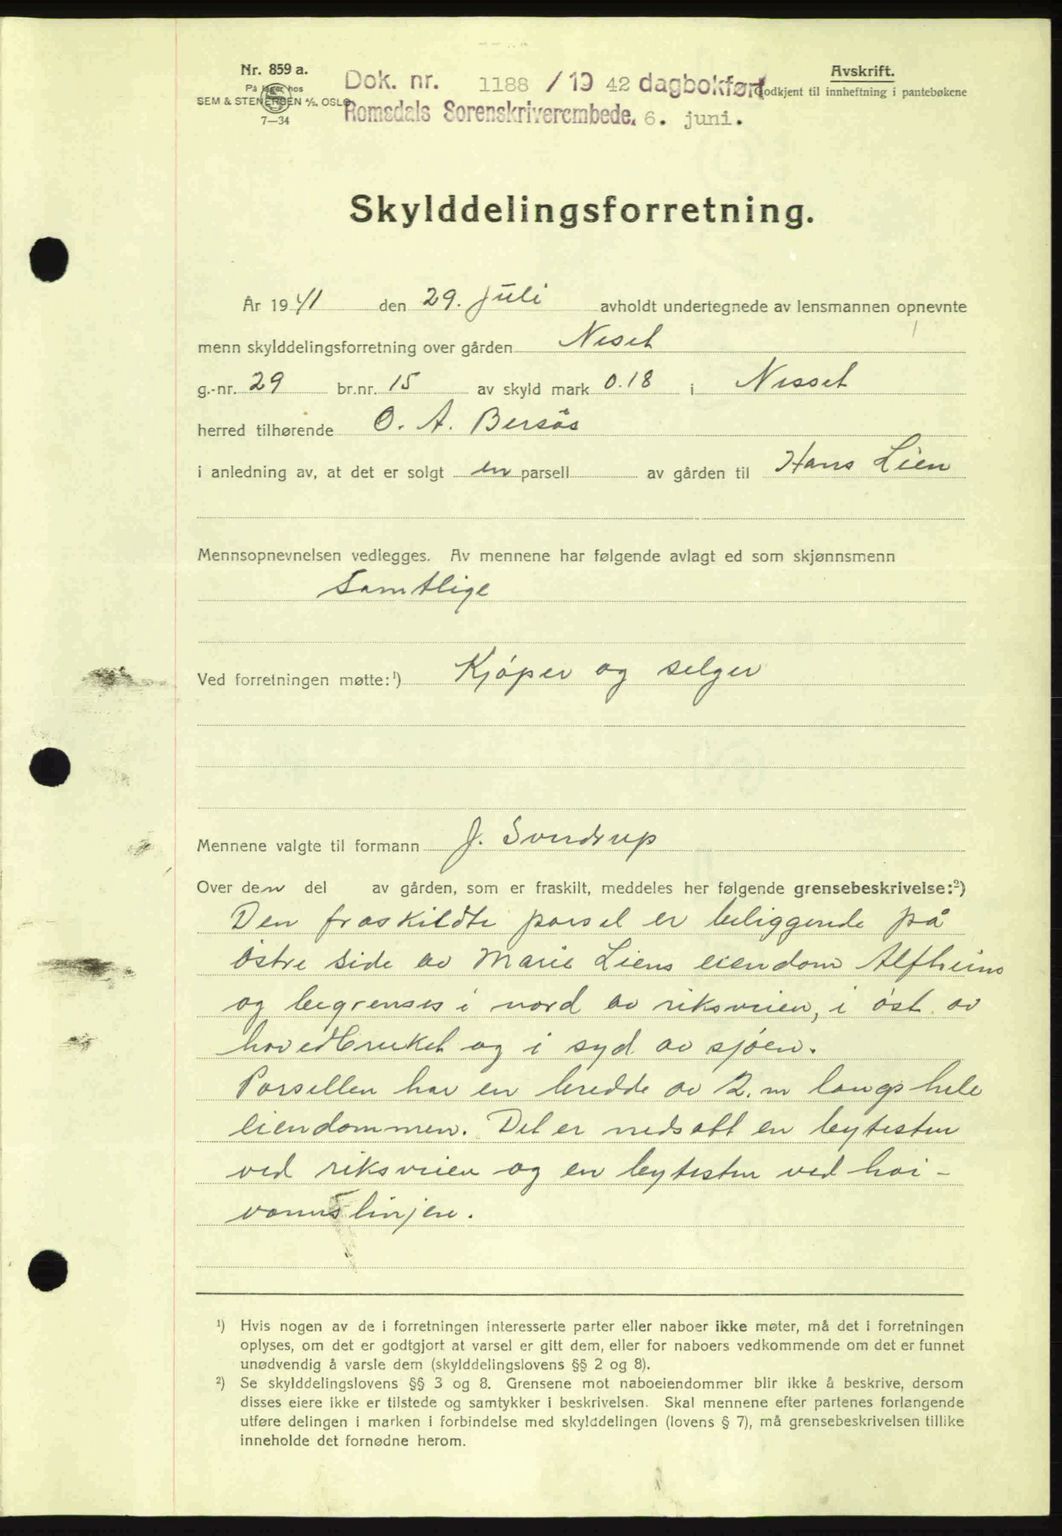 Nr. 859 a.
På lager hos
SEM & STENERSEN A/S. OSLO
7—34
Dok. nr. 1188 / 19 42 dagbokført
Romsdals Sorenskriverembede. 6. juni.
Avskrift.
Godkjent til innheftning i pantebøkene
Skylddelingsforretning.
År 1941 den 29. Juli avholdt undertegnede av lensmannen opnevnte
menn skylddelingsforretning over gården Neset
g.-nr. 29 br.nr. 15 av skyld mark 0.18 i Nesset
herred tilhørende O. A. Bersås
i anledning av, at det er solgt en parsell av gården til Hans Lien
Mennsopnevnelsen vedlegges. Av mennene har følgende avlagt ed som skjønnsmenn
Samtlige
Ved forretningen møtte:¹) Kjøper og selger
Mennene valgte til formann J. Svendrup
Over den del av gården, som er fraskilt, meddeles her følgende grensebeskrivelse:²)
Den fraskildte parsel er beliggende på
østre side av Marie Liens eiendom Alfheim
og begrenses i nord av riksveien, i øst av
hovedbruket og i syd av sjøen.
Parsellen har en bredde av 2. m langs hele
eiendommen. Det er nedsatt en bytesten
ved riksveien og en bytesten ved høi-
vannslinjen.
¹) Hvis nogen av de i forretningen interesserte parter eller naboer ikke møter, må det i forretningen
oplyses, om det er godtgjort at varsel er gitt dem, eller for naboers vedkommende om det er funnet
unødvendig å varsle dem (skylddelingslovens §§ 2 og 8).
²) Se skylddelingslovens §§ 3 og 8. Grensene mot naboeiendommer blir ikke å beskrive, dersom
disses eiere ikke er tilstede og samtykker i beskrivelsen. Skal mennene efter partenes forlangende
utføre delingen i marken i forbindelse med skylddelingen (lovens § 7), må grensebeskrivelsen tillike
inneholde det fornødne herom.